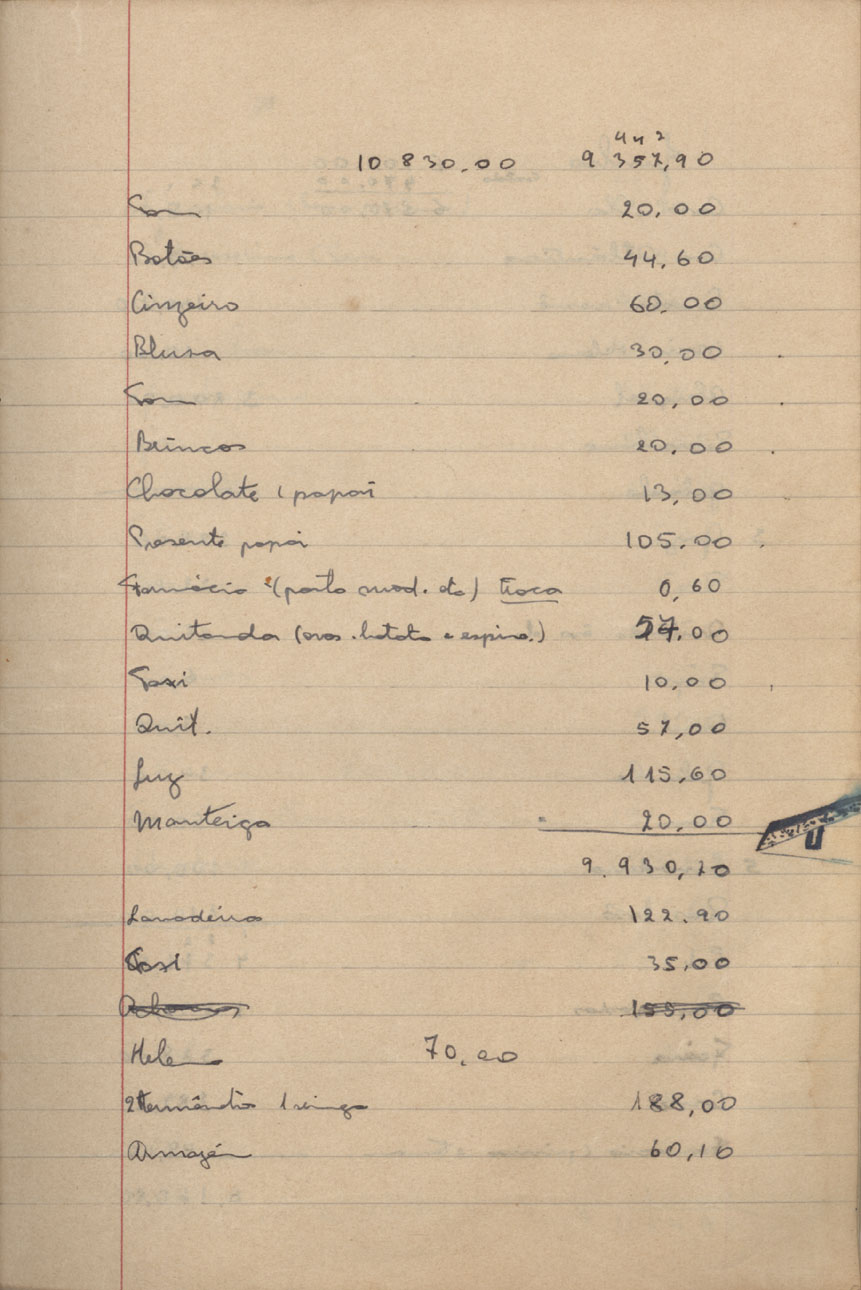 4 4 2
10 830.00 9 357,90
Tom 20,00
Botões 44,60
Cinzeiro 60.00
Blusa 30,00
Tom 20,00
Brincos 20,00
Chocolate (papai 13,00
Presente papai 105.00
Farmácia (parto mod. etc) troca 0,60
Quitanda (ovos. batata e espina.) 57.00
Taxi 10,00
Quit. 57,00
Luz 115,60
Manteiga 20.00
9.930,70
Lavadeira 122.90
Taxi 35,00
155,00
Helena 70,00
188,00
Armazén 60,10